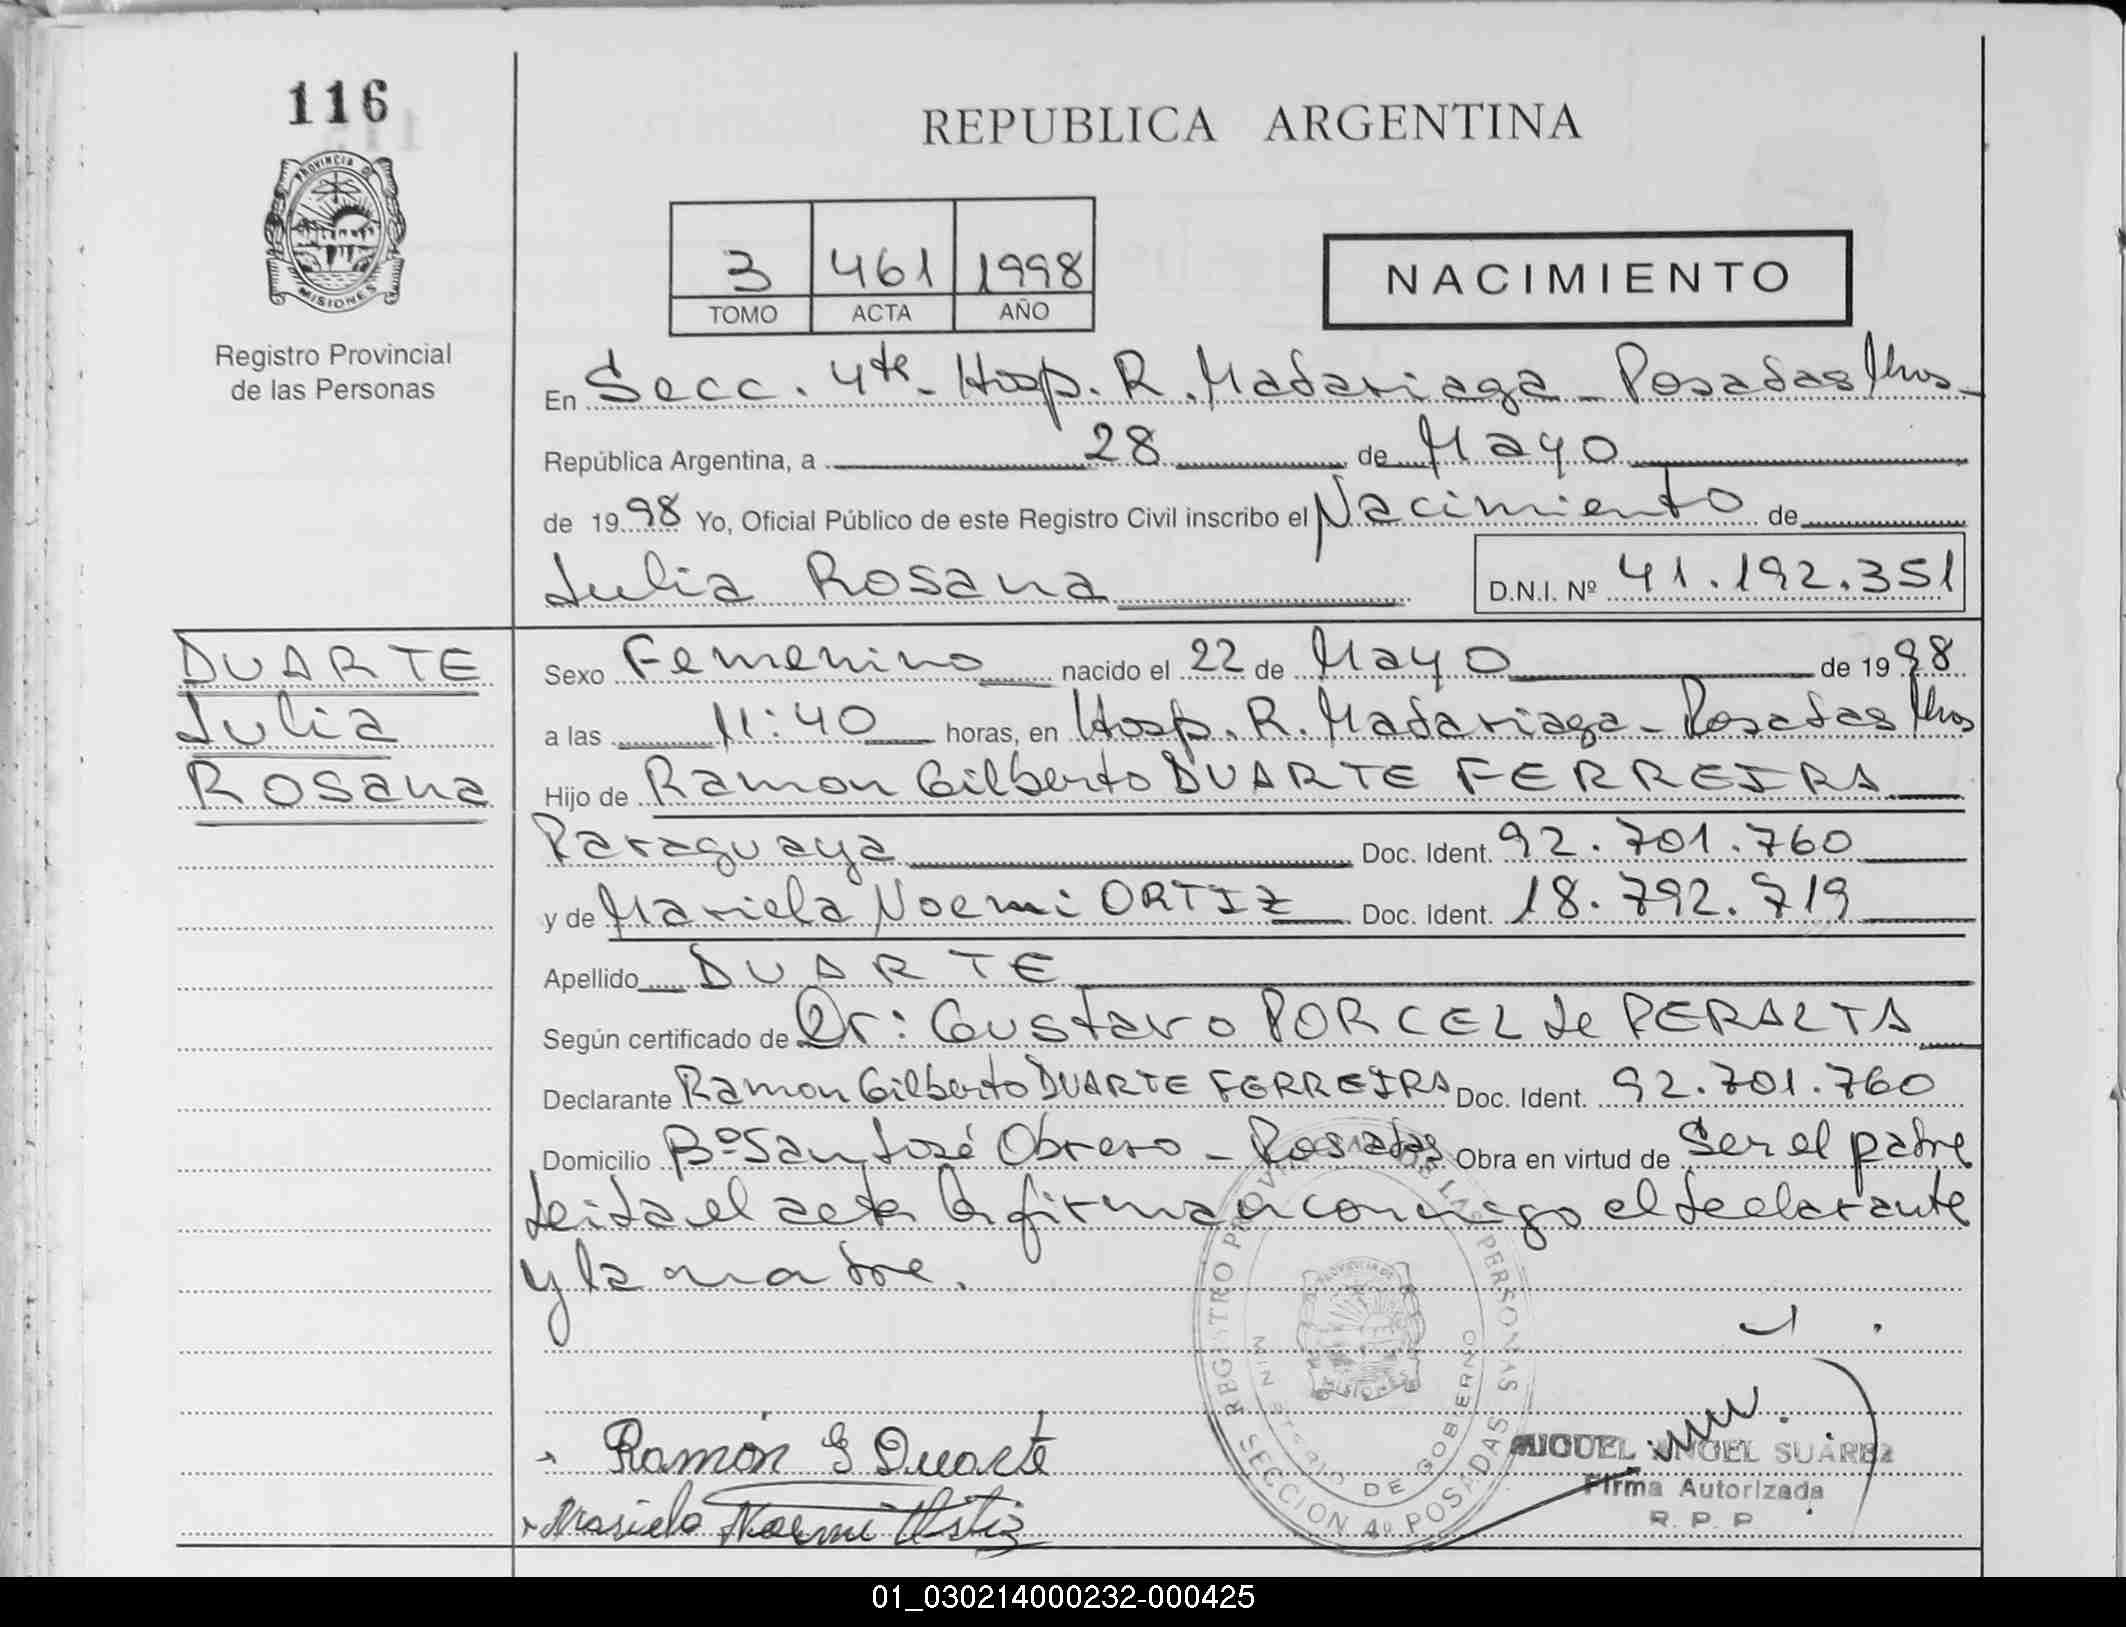 116
PROVINCIA DE
MISIONES
Registro Provincial
de las Personas
REPUBLICA ARGENTINA
3 461 1998
TOMO ACTA AÑO
NACIMIENTO
En Secc. 4ta - Hosp. R. Madariaga - Posadas Mnes -
República Argentina, a 28 de Mayo
de 1998 Yo, Oficial Público de este Registro Civil inscribo el Nacimiento de
Julia Rosana D.N.I. Nº 41.192.351
DUARTE
Julia
Rosana
Sexo Femenino nacido el 22 de Mayo de 1998
a las 11:40 horas, en Hosp. R. Madariaga - Posadas Mnes
Hijo de Ramon Gilberto DUARTE FERREIRA
Paraguaya Doc. Ident. 92.701.760
y de Mariela Noemi ORTIZ Doc. Ident. 18.792.719
Apellido DUARTE
Según certificado de Dr: Gustavo PORCEL de PERALTA
Declarante Ramon Gilberto DUARTE FERREIRA Doc. Ident. 92.701.760
Domicilio Bº San José Obrero - Posadas Obra en virtud de Ser el padre
Leida el acta la firman conmigo el declarante
y la madre.
REGISTRO PROVINCIAL DE LAS PERSONAS
MINISTERIO DE GOBIERNO
SECCION 4º POSADAS
MISIONES
Ramón G Duarte
Mariela Noemi Ortiz
MIGUEL ANGEL SUAREZ
Firma Autorizada
R. P. P
01_030214000232-000425